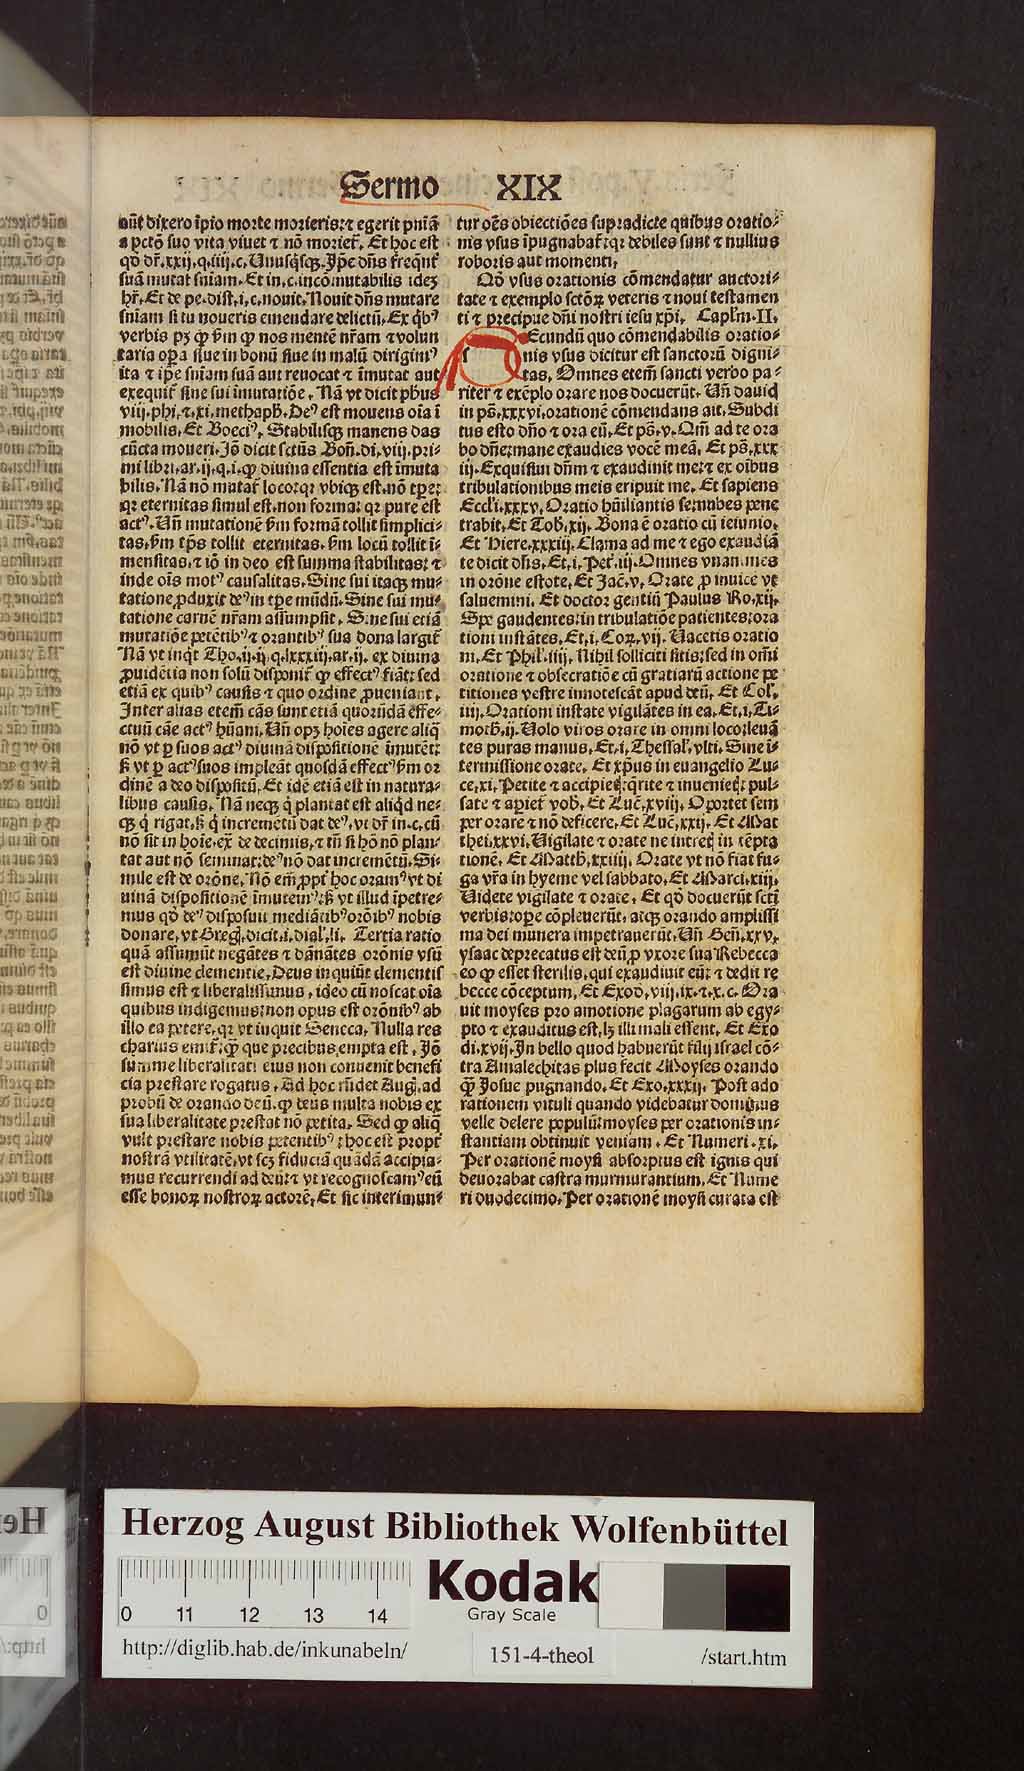 Sermo XIX
aūt dixero īpio morte morieris: ⁊ egerit pn̄iā
a pctō suo vita viuet ⁊ nō moriet᷑. Et hoc est
qd̄ dr̄. xxij. q. iiij. c. Unusq̄sqꝫ. Ip̄e dn̄s freq̄nt᷑
suā mutat sn̄iam. Et in. c. incōmutabilis ideꝫ
hr̄. Et de pe. dist. i. c. nouit. Nouit dn̄s mutare
sn̄iam si tu noueris emendare delictū. Ex q̄bꝰ
verbis pꝫ ꝙ ẜm ꝙ nos mentē nr̄am ⁊ volun
taria oꝑa siue in bonū siue in malū dirigimꝰ
ita ⁊ ip̄e sn̄iam suā aut reuocat ⁊ īmutat aut
exequit᷑ sine sui īmutatiōe. Nā vt dicit ph̄us
viij. phi. ⁊. xi. methaph̄. Deꝰ est mouens oīa ī
mobilis. Et Boeciꝰ. Stabilisqꝫ manens das
cūcta moueri. Iō dicit sctūs Bon̄. di. viij. pri-
mi libri. ar. ij. q. i. ꝙ diuina essentia est īmuta
bilis. Nā nō mutat᷑ loco: qꝛ vbiqꝫ est. nō tꝑe:
qꝛ eternitas simul est. non forma: qꝛ pure est
actꝰ. Un̄ mutationē ẜm formā tollit simplici-
tas. ẜm tp̄s tollit eternitas. ẜm locū tollit ī-
mensitas. ⁊ iō in deo est summa stabilitas: ⁊
inde oīs motꝰ causalitas. Sine sui itaqꝫ mu-
tatione ꝓduxit deꝰ in tꝑe mūdū. Sine sui mu-
tatione carnē nr̄am assumpsit. Sine sui etiā
mutatiōe petētibꝰ ⁊ orantibꝰ sua dona largit᷑
Nā vt inq̄t Tho. ij. ij. q. lxxxiij. ar. ij. ex diuina
ꝓuidētia non solū disponit᷑ ꝙ effectꝰ fiāt: sed
etiā ex quibꝰ causis ⁊ quo ordine ꝓueniant.
Inter alias etem̄ cās sunt etiā quorūdā effe-
ctuū cāe actꝰ hūani. Un̄ opꝫ hoīes agere aliq̄
nō vt ꝑ suos actꝰ diuinā dispositionē īmutēt:
ꝫ vt ꝑ actꝰ suos impleāt quosdā effectꝰ ẜm or
dinē a deo dispositū. Et idē etiā est in natura-
libus causis. Nā neqꝫ q̄ plantat est aliqd̄ ne-
qꝫ q̄ rigat. ꝫ q̄ incremētū dat deꝰ. vt dr̄ in. c. cū
nō sit in hoīe. ex̄ de decimis. ⁊ tn̄ si hō nō plan-
tat aut nō seminat: deꝰ nō dat incremētū. Si-
mile est de orōne. Nō em̄ ꝓpt᷑ hoc oramꝰ vt di
uinā dispositionē īmutemꝰ: ꝫ vt illud īpetre-
mus qd̄ deꝰ disposuit mediātibꝰ orōibꝰ nobis
donare. vt Greg. dicit. i. dial̓. li. Tertia ratio
quā assumūt negātes ⁊ dānātes orōnis vsū
est diuine clementie. Deus inquiūt clementis
simus est ⁊ liberalissimus. ideo cū noscat oīa
quibus indigemus: non opus est orōnibꝰ ab
illo ea petere. qꝛ vt inquit Seneca. Nulla res
charius emit᷑: ꝙ̄ que precibus empta est. Iō
summe liberalitati eius non conuenit benefi
cia prestare rogatus. Ad hoc rn̄det Aug. ad
probū de orando deū. ꝙ deus multa nobis ex
sua liberalitate prestat nō petita. Sed ꝙ aliq̄
vult prestare nobis petentibꝰ: hoc est propt᷑
nostrā vtilitatē. vt scꝫ fiduciā quādā accipia-
mus recurrendi ad deū: ⁊ vt recognoscamꝰ eū
esse bonoꝝ nostroꝝ actorē. Et sic interimun-
tur oēs obiectiōes supradicte quibus oratio-
nis vsus īpugnabat᷑: qꝛ debiles sunt ⁊ nullius
roboris aut momenti.
Qd̄ vsus orationis cōmendatur auctori-
tate ⁊ exemplo sctōꝝ veteris ⁊ noui testamen
ti ⁊ precipue dn̄i nostri iesu xp̄i. Caplm̄. II.
sEcundū quo cōmendabilis oratio-
nis vsus dicitur est sanctorū digni-
tas. Omnes etem̄ sancti verbo pa-
riter ⁊ exēplo orare nos docuerūt. Un̄ dauid
in ps̄. xxxvi. orationē cōmendans ait. Subdi
tus esto dn̄o ⁊ ora eū. Et ps̄. v. Qm̄ ad te ora
bo dn̄e: mane exaudies vocē meā. Et ps̄. xxx
iij. Exquisiui dn̄m ⁊ exaudiuit me: ⁊ ex oībus
tribulationibus meis eripuit me. Et sapiens
Eccl̓i. xxxv. Oratio hūiliantis se: nubes pene
trabit. Et Tob̄. xij. Bona ē oratio cū ieiunio.
Et Hiere. xxxiij. Clama ad me ⁊ ego exaudiā
te dicit dn̄s. Et. i. Pet᷑. iij. Omnes vnanimes
in orōne estote. Et Jac̄. v. Orate ꝓ inuicē vt
saluemini. Et doctor gentiū Paulus Ro. xij.
Spe gaudentes: in tribulatiōe patientes: ora
tioni instātes. Et. i. Coꝝ. vij. Uacetis oratio
ni. Et Phil̓. iiij. Nihil solliciti sitis: sed in om̄i
oratione ⁊ obsecratiōe cū gratiarū actione pe
titiones vestre innotescāt apud deū. Et Col̓.
iiij. Orationi instate vigilātes in ea. Et. i. Ti-
moth̄. ij. Uolo viros orare in omni loco: leuā
tes puras manus. Et. i. Thessal̓. vlti. Sine ī-
termissione orate. Et xp̄us in euangelio Lu-
ce. xi. Petite ⁊ accipietꝭ: q̄rite ⁊ inuenietꝭ: pul-
sate ⁊ apiet᷑ vob̄. Et Luc̄. xviij. Oportet sem
per orare ⁊ nō deficere. Et Luc̄. xxij. Et Mat
thei. xxvi. Uigilate ⁊ orate ne intretꝭ in tēpta
tionē. Et Matth̄. xxiiij. Orate vt nō fiat fu-
ga vr̄a in hyeme vel sabbato. Et Marci. xiij.
Uidete vigilate ⁊ orate. Et qd̄ docuerūt sctī
verbis: oꝑe cōpleuerūt. atqꝫ orando amplissi
ma dei munera impetrauerūt. Un̄ Gen̄. xxv.
ysaac deprecatus est deū ꝓ vxore sua Rebecca
eo ꝙ esset sterilis. qui exaudiuit eū: ⁊ dedit re
becce cōceptum. Et Exod̄. viij. ix. ⁊. x. c. Ora
uit moyses pro amotione plagarum ab egy-
pto ⁊ exauditus est. lꝫ illi mali essent. Et Exo
di. xvij. In bello quod habuerūt filij israel cō-
tra Amalechitas plus fecit Moyses orando
ꝙ̄ Josue pugnando. Et Exo. xxxij. Post ado
rationem vituli quando videbatur dominus
velle delere populū: moyses per orationis in-
stantiam obtinuit veniam. Et Numeri. xi.
Per orationē moysi absorptus est ignis qui
deuorabat castra murmurantium. Et Nume
ri duodecimo. Per orationē moysi curata est
Herzog August Bibliothek Wolfenbüttel
Kodak
Gray Scale
0 11 12 13 14
http://diglib.hab.de/inkunabeln/
151-4-theol
/start.htm